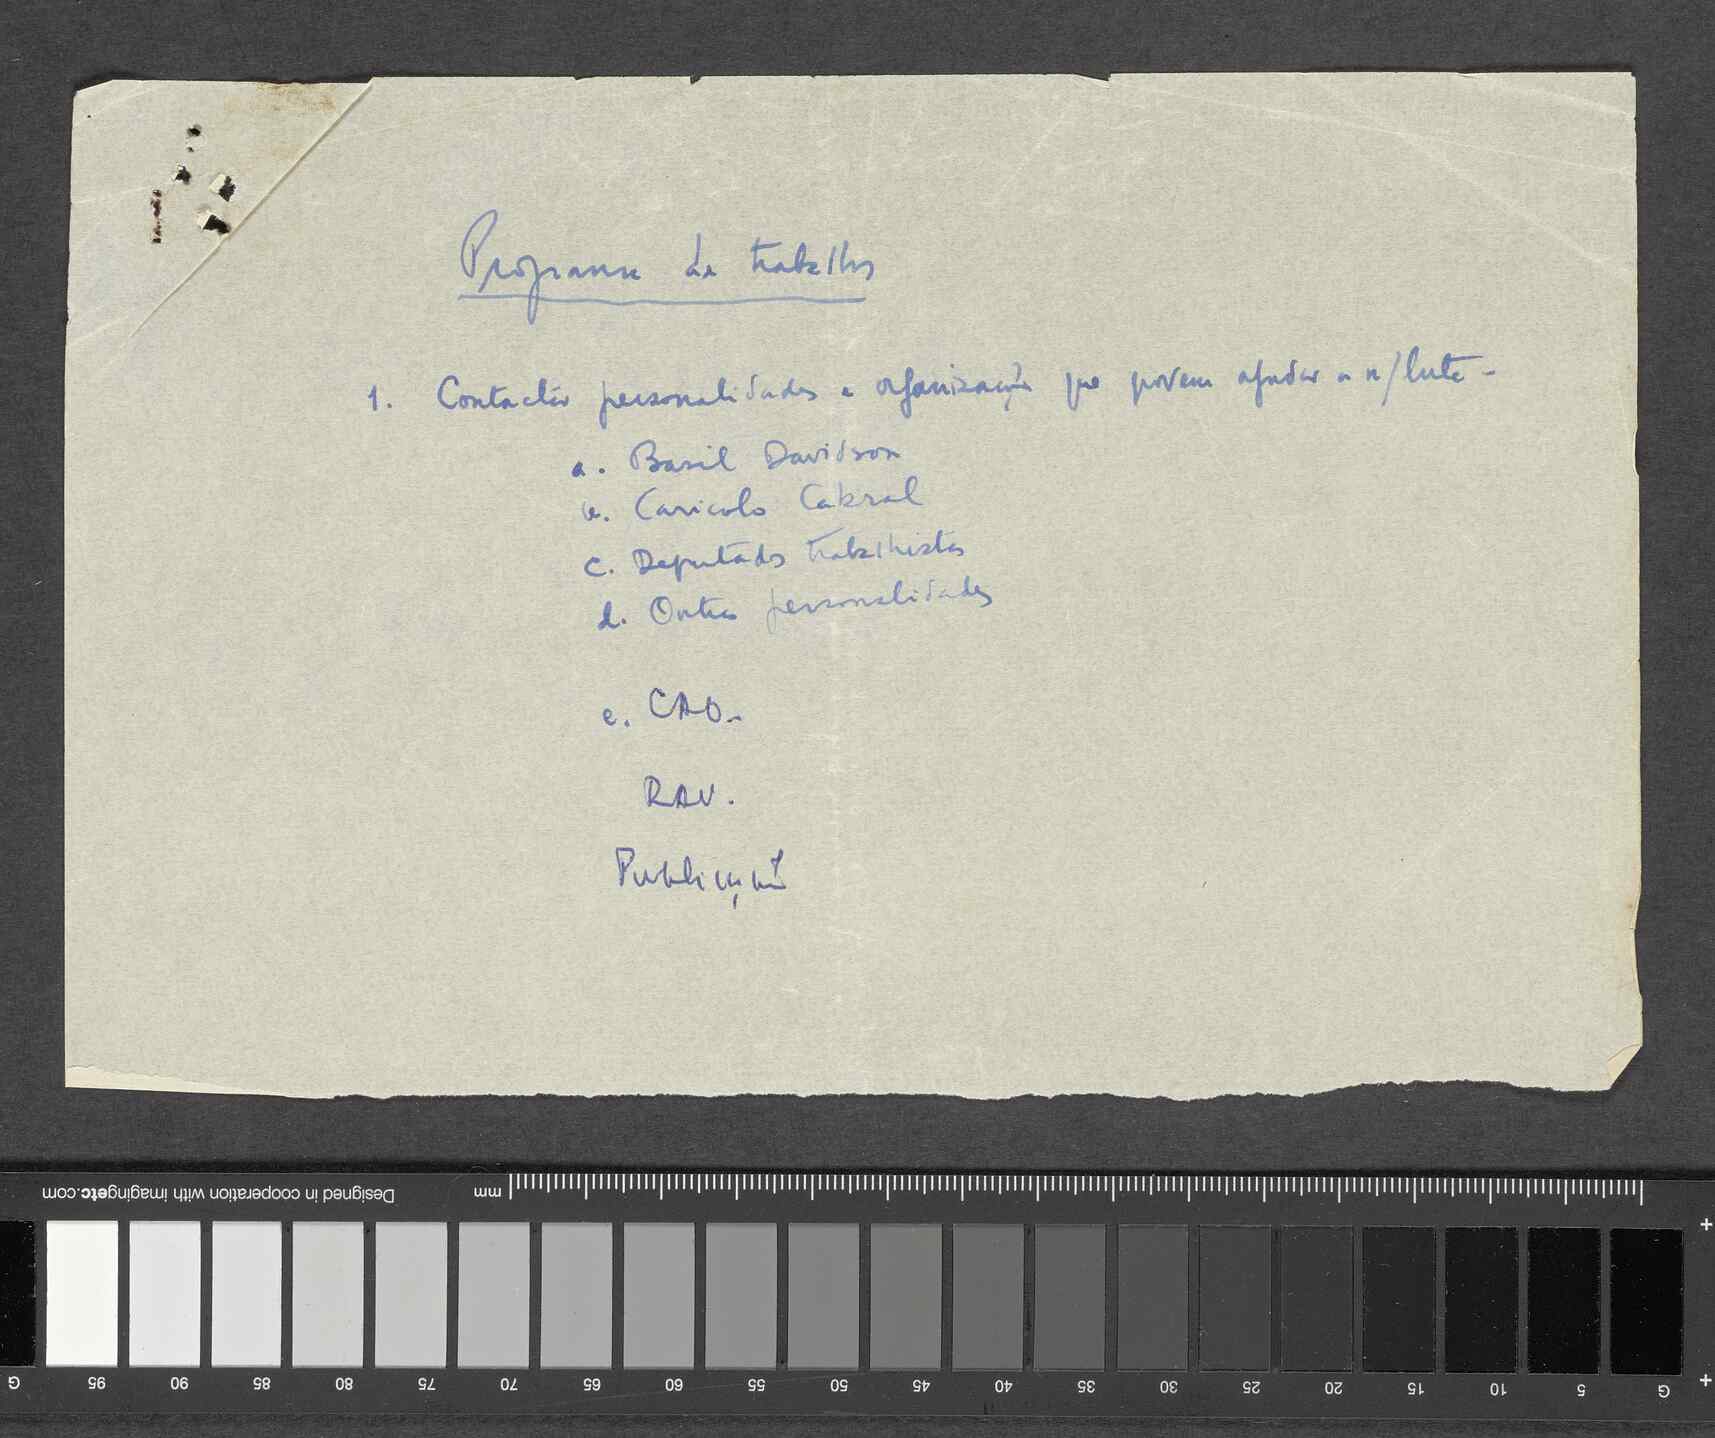 Programa de trabalhos
1. Contactar personalidades e organizações que podem ajudar a n/luta -
a. Basil Davidson
b. Cabral
c. Deputados trabalhistas
d. Outras personalidades
e. CAO.
RAU.
Publicação
Designed in cooperation with imagingetc.com
mm
G 95 90 85 80 75 70 65 60 55 50 45 40 35 30 25 20 15 10 5 G